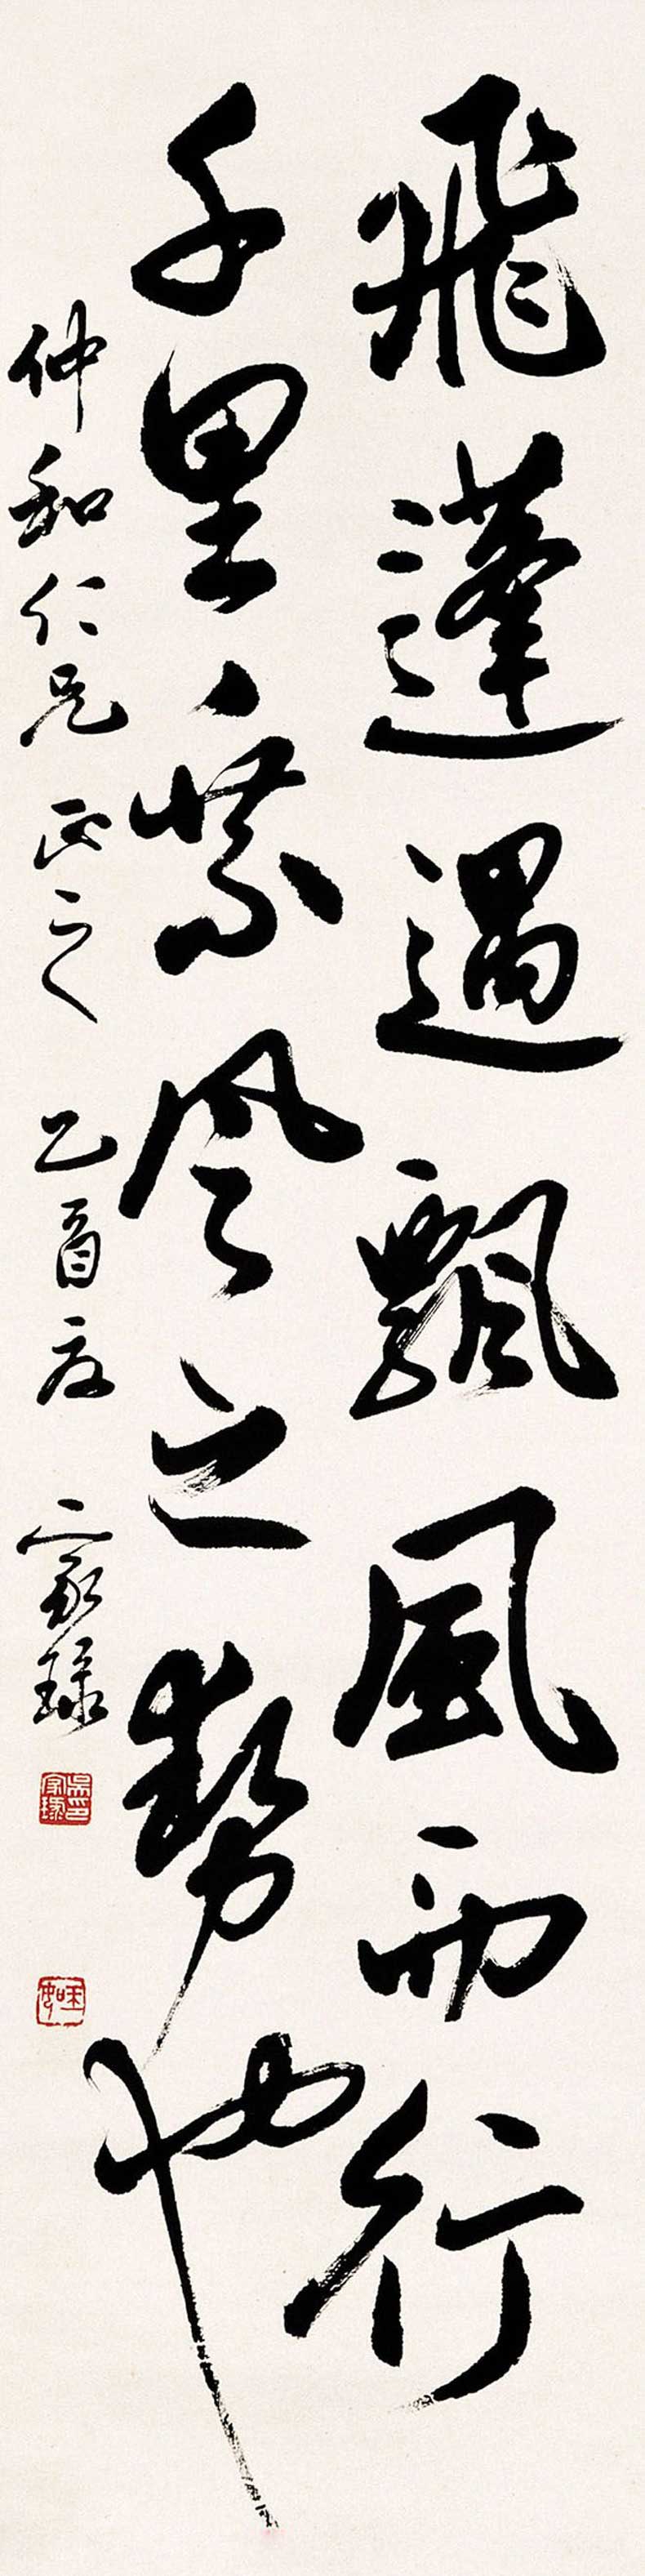 飛蓬遇飄風而行
千里乘風之勢也
仲和仁兄正之 乙酉夏 家琭
吳家琭印